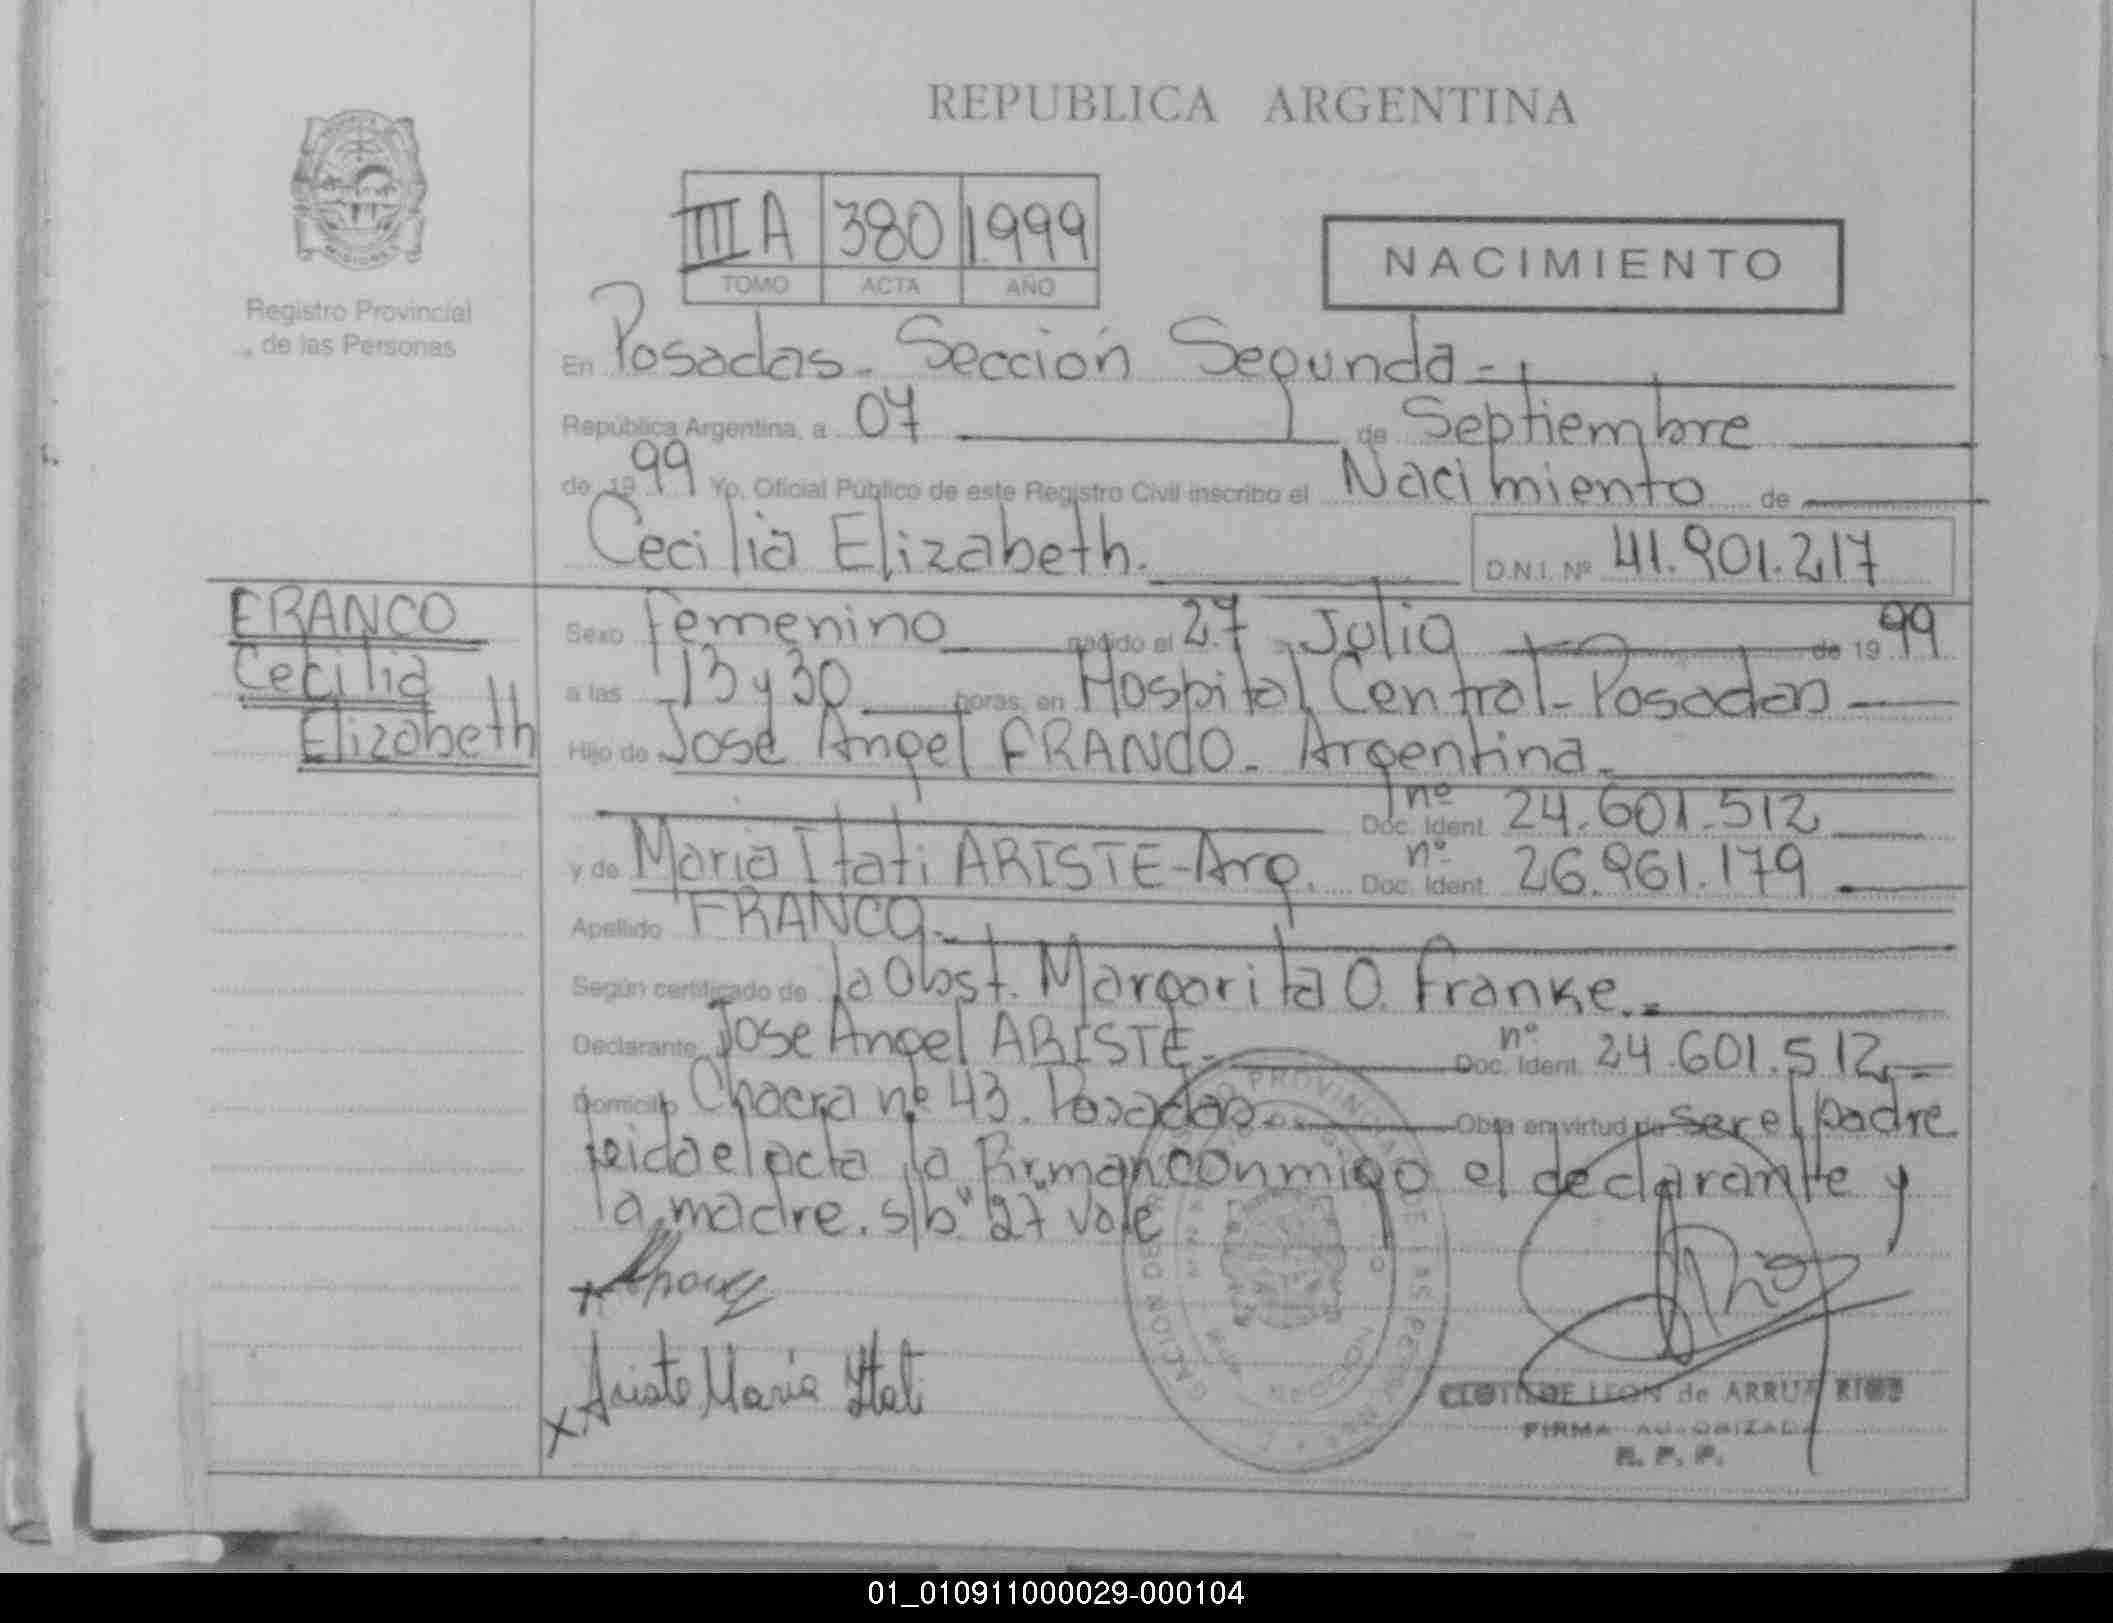 REPUBLICA ARGENTINA
III A 380 1.999
TOMO ACTA AÑO
NACIMIENTO
Registro Provincial
de las Personas
En Posadas - Sección Segunda -
República Argentina, a 07 de Septiembre
de 1999 Yo, Oficial Público de este Registro Civil inscribo el Nacimiento de
Cecilia Elizabeth. D.N.I. Nº 41.901.217
FRANCO
Cecilia
Elizabeth
Sexo Femenino nacido el 27 Julio de 1999
a las 13 y 30 horas, en Hospital Central - Posadas
Hijo de José Angel FRANCO - Argentina -
nº
Doc. Ident. 24.601.512
y de Maria Itati ARISTE - Arg. nº Doc. Ident. 26.961.179
Apellido FRANCO -
Según certificado de la Obst. Margarita O. Franke. -
Declarante Jose Angel ARISTE - nº Doc. Ident. 24.601.512 -
Domicilio Chacra nº 43. Posadas - Obra en virtud de ser el padre
leida el acta la firman conmigo el declarante y
la madre. s/b "27" vale
x
x Ariste Maria Itati
CLOTILDE LEON de ARRUA RIOS
FIRMA AUTORIZADA
R. P. P.
01_010911000029-000104